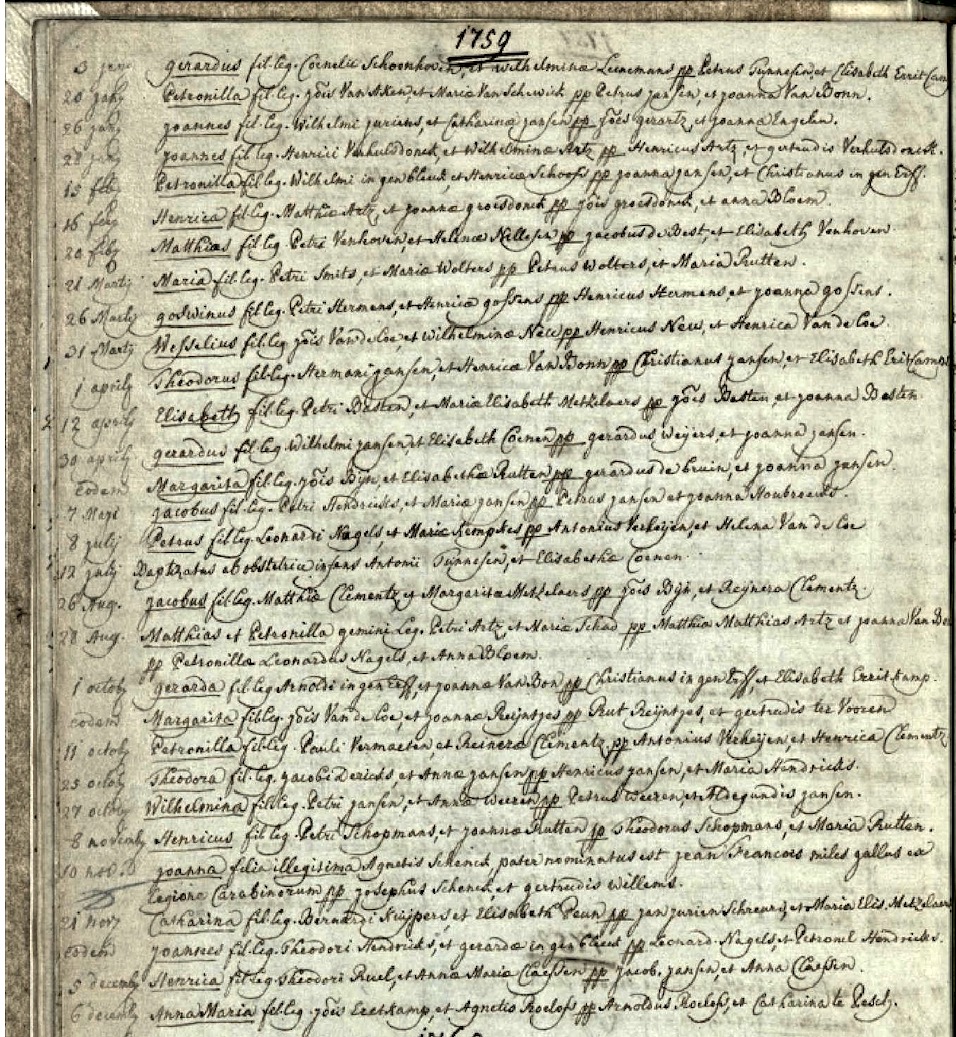 1759
3 gerardus fil. leg. Cornelii Schoonhoven, et Wilhelminæ Leenemans pp Petrus Tynnesen, et Elisabeth Errit
20 janij Petronilla fil. leg. jois Van Aken, et Mariæ Van Schewick pp Petrus jansen, et joanna Van Bonn.
26 janij joannes fil. leg. Wilhelmi juriens, et Catharinæ jansen pp jois gerartz, et joanna Engelen.
28 janij joannes fil. leg. Henrici Verhulsdonck, et Wilhelminæ Artz pp Henricus Artz, et gertrudis Verhulsdonck.
15 feb Petronilla fil. leg. Wilhelmi in gen bleuk et Henricæ Schoofs pp joanna jansen, et Christianus in gen Eiff.
16 feb Henrica fil. leg. Matthiæ Artz, et joannæ groesdonck pp jois groesdonck, et anna Bloem.
20 feb Matthias fil. leg. Petri Venhoven et Helenæ Nellesen pp jacobus de Best, et Elisabeth Venhoven
21 Martij Maria fil. leg. Petri Smits, et Mariæ Wolters pp Petrus Wolters, et Maria Rutten.
26 Martij goswinus fil. leg. Petri Hermens, et Henricæ gossens pp Henricus Hermens, et joanna gossens.
31 Martij Wesselius fil. leg. jois Van de Loe, et Wilhelminæ New pp Henricus New, et Henrica Van de Loe.
1 aprilij Theodorus fil. leg. Hermani jansen, et Henricæ Van Bonn pp Christianus jansen, et Elisabeth
12 aprilij Elisabeth fil. leg. Petri Basten, et Mariæ Elisabeth Metzelaers pp jois Basten, et joanna Basten.
30 aprilij gerardus fil. leg. Wilhelmi jansen, et Elisabeth Coenen pp gerardus Weijers, et joanna jansen.
eodem Margarita fil. leg. jois Bijn, et Elisabethæ Rutten pp gerardus de bruin, et joanna jansen.
7 Maji jacobus fil. leg. Petri Hendrickes, et Mariæ jansen pp Petrus jansen et joanna Houbroecks.
8 julij Petrus fil. leg. Leonardi Nagels, et Mariæ Kempkes pp Antonius Verheijen, et Helena Van de Loe
12 julij Baptizatus ab obstetrice infans Antonii Tynnesen, et Elisabethæ Coenen.
26 Aug. jacobus fil. leg. Matthiæ Clementz, et Margaritæ Metzelaers pp jois Bijn, et Reijnera Clementz.
28 Aug. Matthias et Petronilla gemini leg. Petri Artz, et Mariæ Schad pp Matthiæ Matthias Artz et joanna Van
pp Petronillæ Leonardus Nagels, et Anna Bloem.
1 octob gerarda fil. leg. Arnoldi in gen Eiff, et joannæ Van Bon pp Christianus in gen Eiff, et Elisabeth Erritkamp.
eodem Margarita fil. leg. jois Van de Loe, et joannæ Reijntjes pp Rut Reijntjes, et gertrudis ter Vooren
11 octob Petronilla fil. leg. Pauli Vermaeten, et Reineræ Clementz, pp Antonius Verheijen, et Henrica Clementz
25 octob Theodora fil. leg. jacobi Dericks et Annæ jansen pp Henricus jansen, et Maria Hendricks.
27 octob Wilhelmina fil. leg. Petri jansen, et Annæ Weeren pp Petrus Weeren, et Aldegundis jansen.
8 novemb Henricus fil. leg. Petri Schopmans, et joannæ Rutten pp Theodorus Schopmans, et Maria Rutten.
10 nov. joanna filia illegitima Agnetis Schenck, pater nominatus est jean Francois miles gallus ex
legione Carabinorum pp josephus Schenck, et gertrudis Willems.
1 nov Catharina fil. leg. Bernardi Kuijpers et Elisabeth Peun pp jan jurien Schreurs, et Maria Elis. Metzelaers
eodem joannes fil. leg. Theodori Hendricks, et gerardæ in gen bleek pp Leonard. Nagels, et Petronel Hendrickes.
5 decemb Henrica fil. leg. Theodori Ruel, et Annæ Mariæ Claessen pp jacob. jansen, et Anna Claessen.
6 decemb Anna Maria fil. leg. jois Eretkamp, et Agnetis Roelofs pp Arnoldus Roelofs, et Catharina te Pesch.